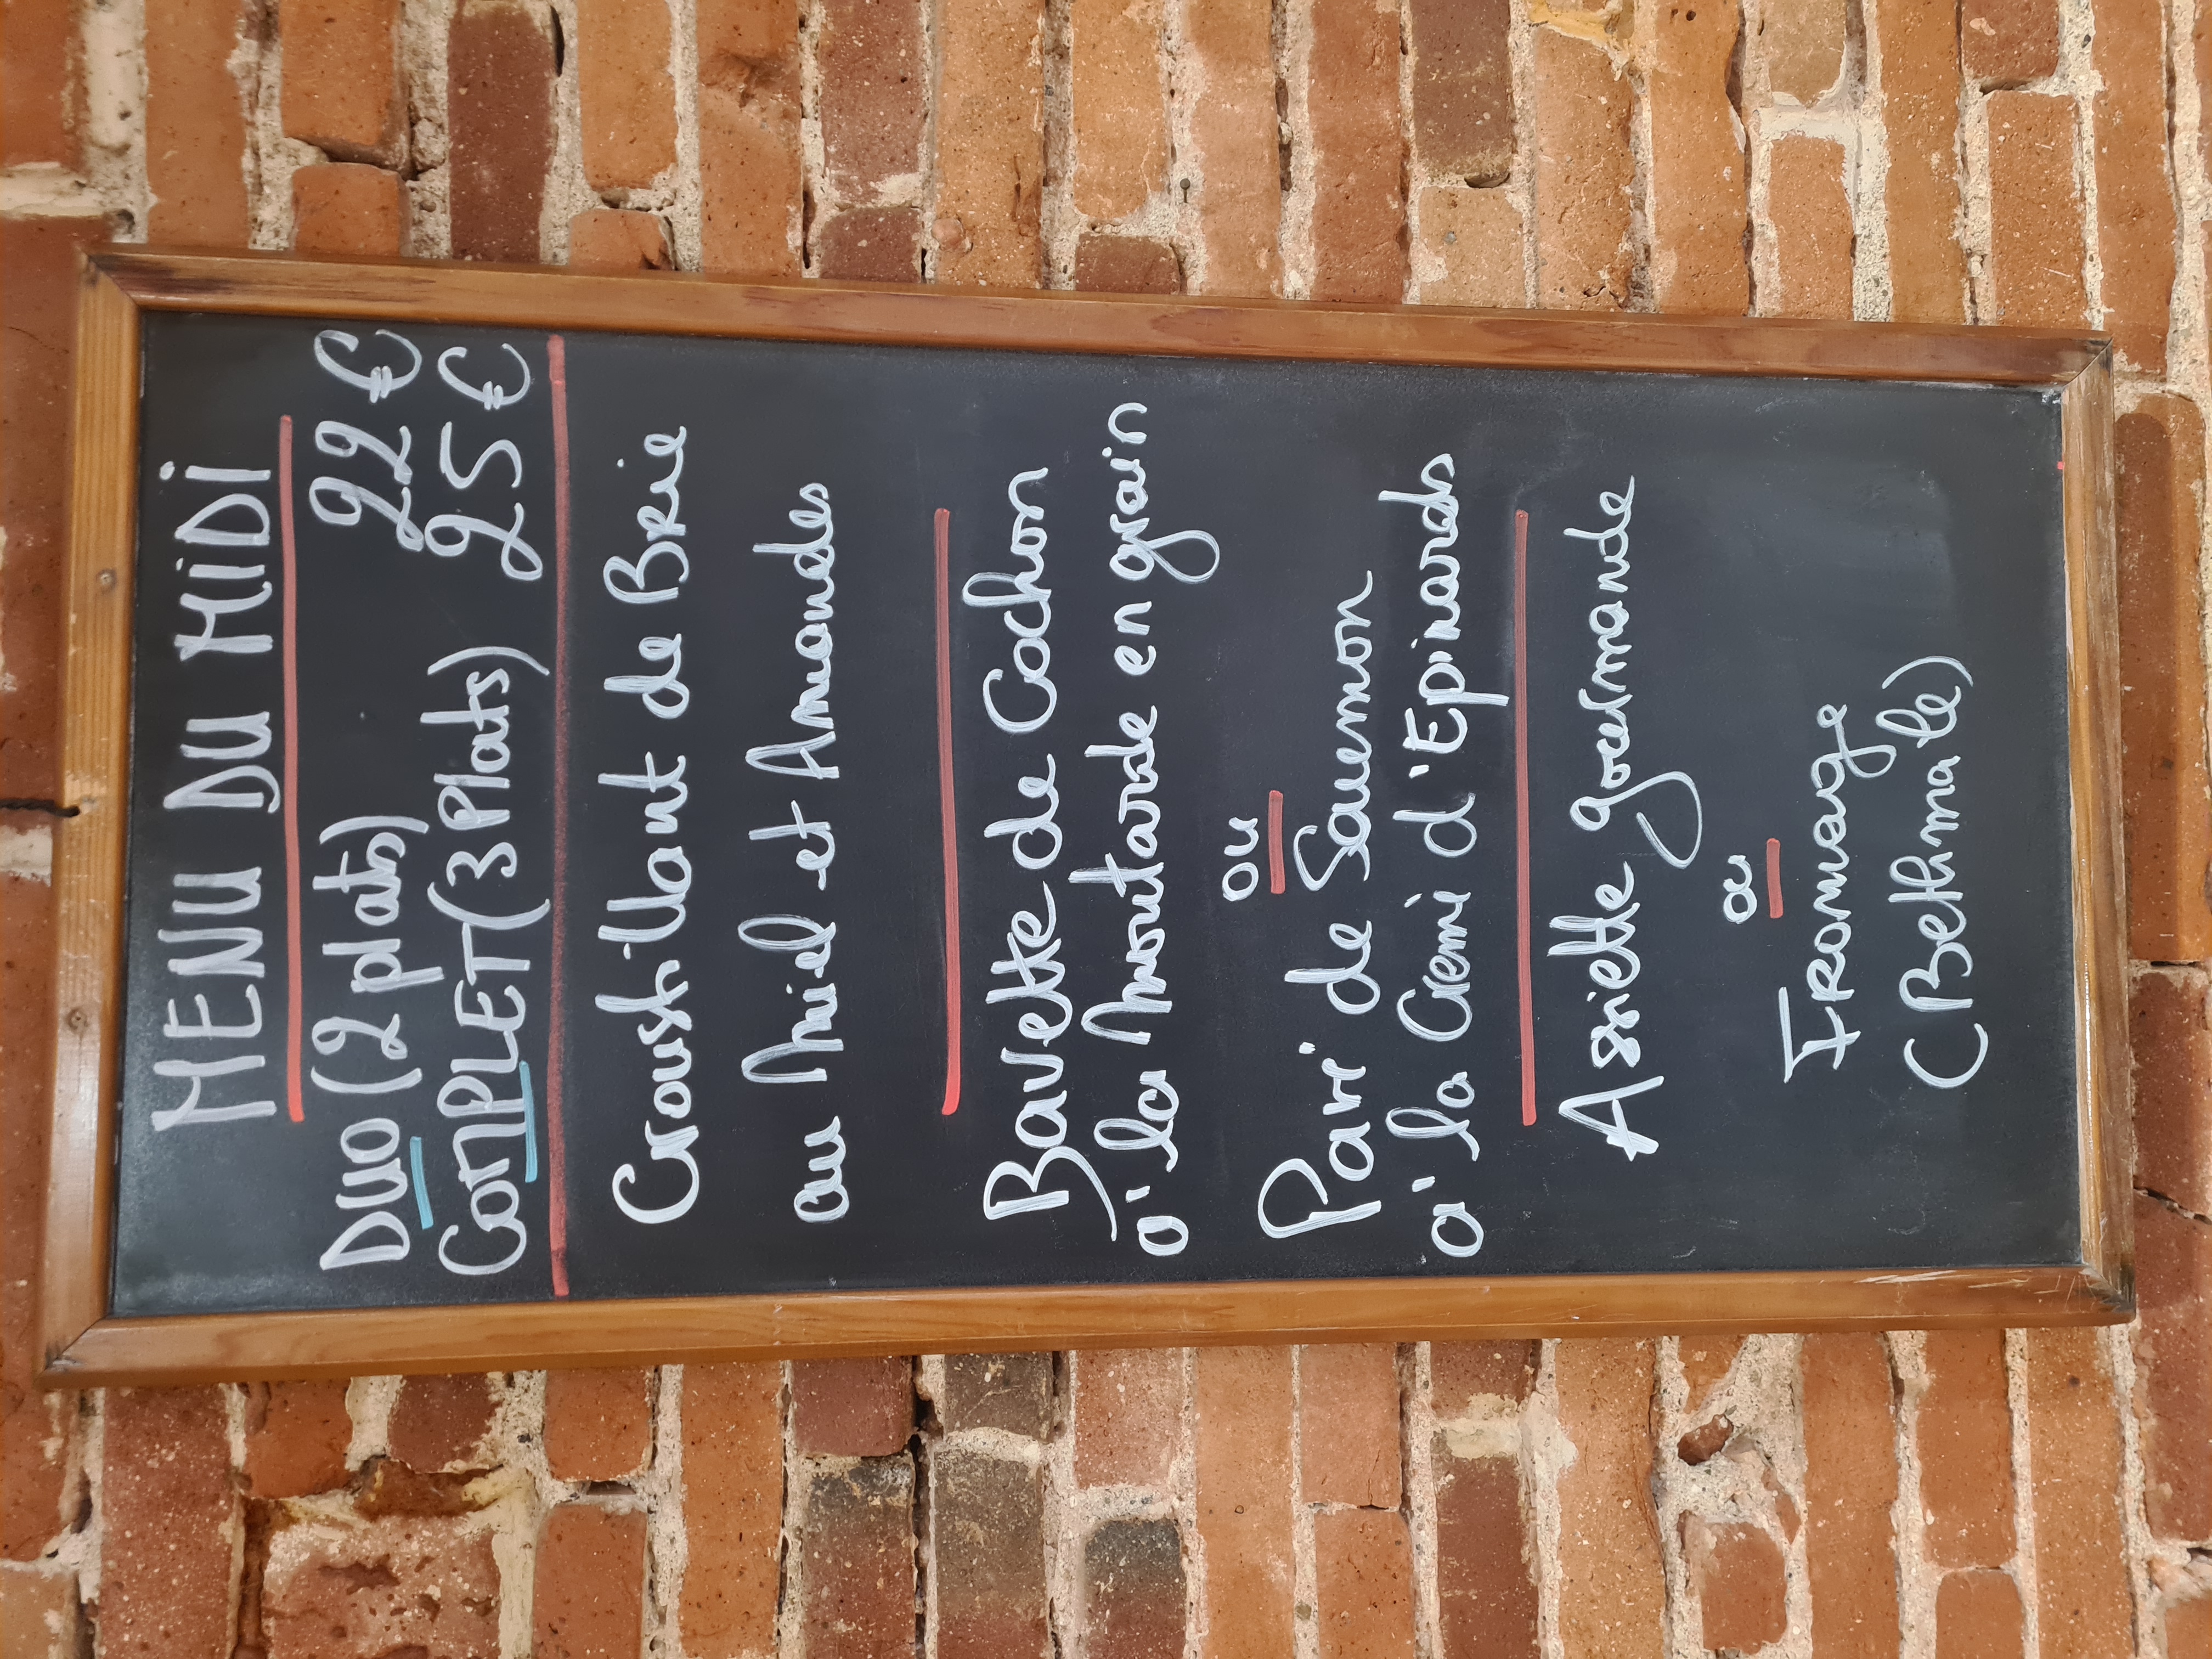 MENU DU MiDi
DUO (2 plats) 22€
COMPLET (3 Plats) 25€
Croustillant de Brie
au Miel et Amandes
Bavette de Cochon
à la Moutarde en grain
ou
Pavé de Saumon
à la Crème d'Epinards
Assiette gourmande
ou
Fromage
(Bethmale)